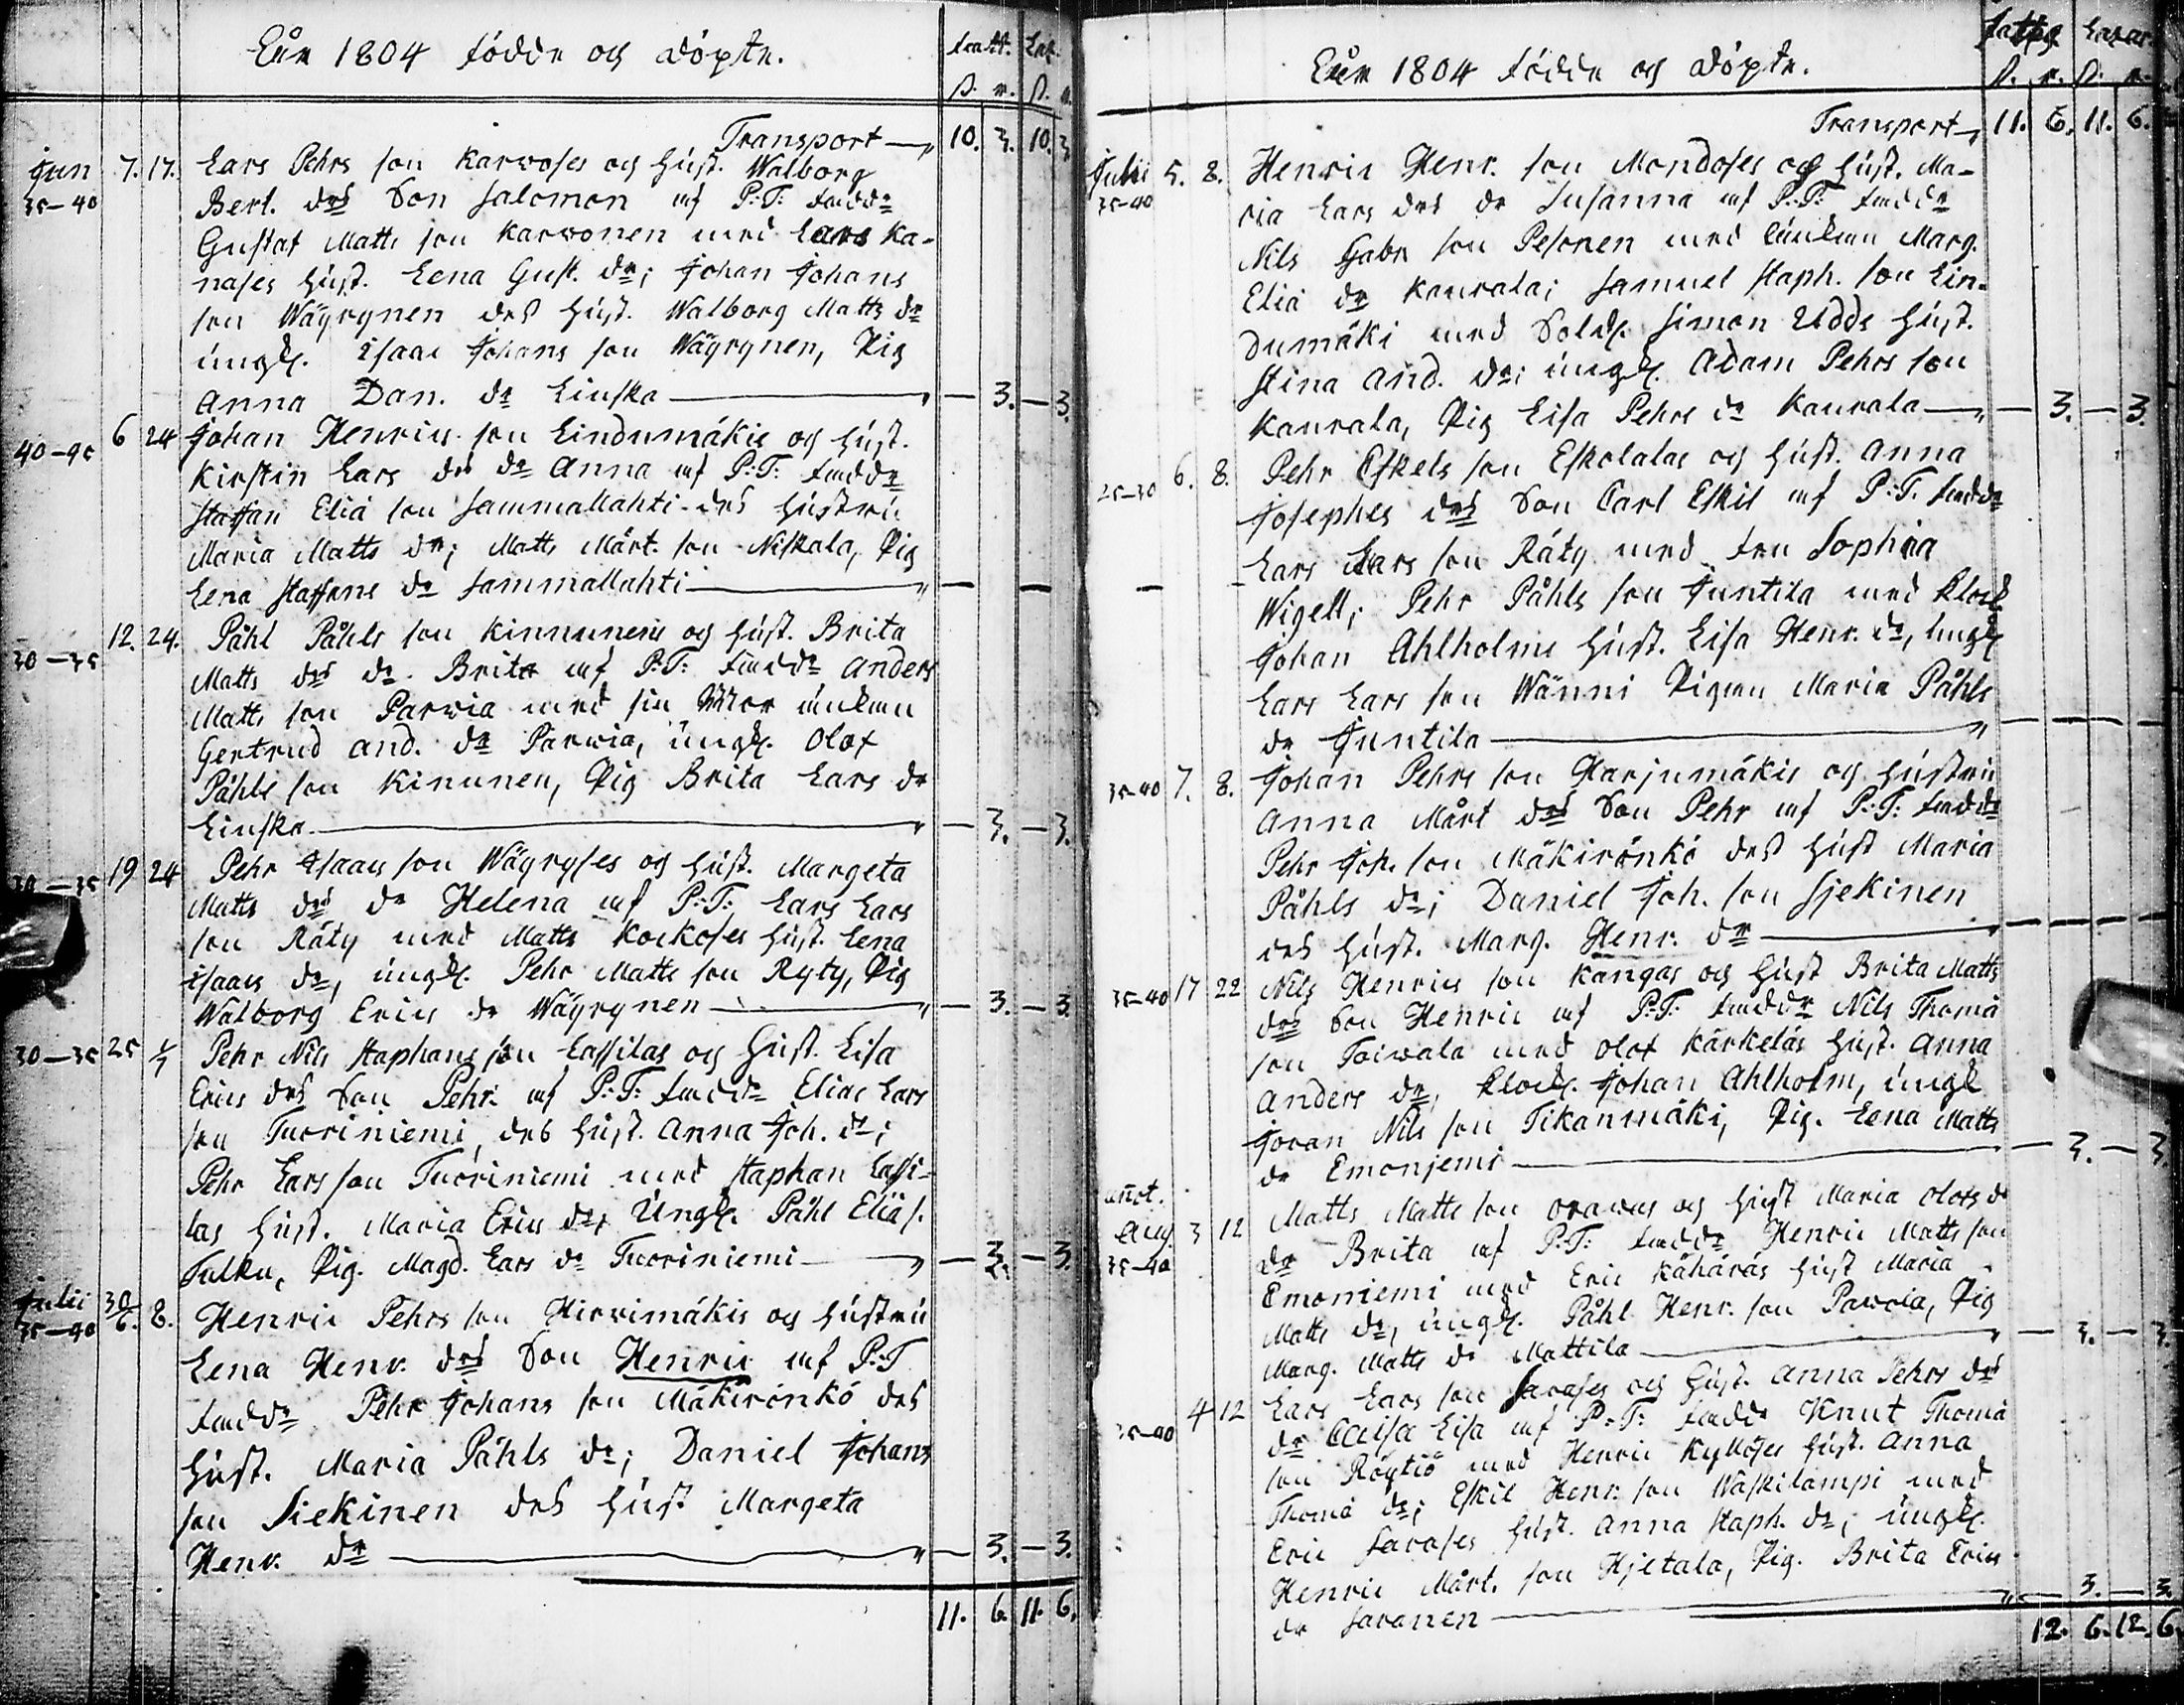 Åhr 1804 födde og döpte.
fatt. Laz.
ß. r. ß. r.
Transport 10. 3. 10. 3
Jun 7. 17. Lars Pehrs son Karvoses og Hust. Walborg
35-40 Bert. drs Son Salomon af P:T: fadd:r
Gustaf Matts son Karvonen med Lars Ka-
nases Hust. Lena Gust. dr; Johan Johans
son Wäyrynen des Hust. Walborg Matts dr
ungk. Isaac Johans son Wäyrynen, Pig
Anna Dan. dr Linska — 3. — 3.
40-45 6 24 Johan Henrics son Lindumäkis og Hust.
Kirstin Lars drs dr Anna af P:T: fadd:r
Staffan Eliä son Sammallahti des Hustru
Maria Matts dr; Matts Mårt. son Niskala, Pig
Lena Staffans dr Sammallahti — —
12. 24. Påhl Påhls son Kinnunens og Hust. Brita
30-35 Matts drs dr Brita af P:T: fadd:r Anders
Matts son Parvia med sin Mor enkan
Gertrud And. dr Parvia, ungk. Olof
Påhls son Kinunen, Pig Brita Lars dr
Linska — 3. — 3.
30-35 19 24 Pehr Isaacs son Wäyryses og Hust. Margeta
Matts drs dr Helena af P:T: Lars Lars
son Räty med Matts Kockoses Hust. Lena
Isaacs dr, ungk. Pehr Matts son Ryty, Pig
Walborg Erics dr Wäyrynen — 3. — 3.
30-35 25 1/7 Pehr Nils Staphans son Lassilas og Hust. Lisa
Erics drs Son Pehr af P:T: fadd:r Elias Lars
son Tuoriniemi des Hust. Anna Joh. dr;
Pehr Lars son Tuoriniemi med Staphan Lassi-
las Hust. Maria Erics dr; Ungk. Påhl Eliä s.
Tulku, Pig. Magd. Lars dr Tuoriniemi — 3. — 3.
Julii 30/6. 8. Henric Pehrs son Hirvimäkis og Hustru
35-40 Lena Henr. drs Son Henric af P:T
fadd:r Pehr Johans son Mäkirönkö des
Hust. Maria Påhls dr; Daniel Johans
son Siekinen des Hust Margeta
Henr. dr — 3. — 3.
11. 6. 11. 6.
Åhr 1804 födde og döpte.
ß. r. ß. r.
Transport 11. 6. 11. 6.
Julii 5. 8. Henric Henr. son Mondoses og Hust. Ma-
35-40 ria Lars drs dr Susanna af P:T: fadd:r
Nils Gabr son Pesonen med Enkan Marg.
Eliä dr Kaurala; Samuel Staph. son Lin-
dumäki med Soldk. Simon Udds Hust.
Stina And. dr; ungk. Adam Pehrs son
Kaurala, Pig Lisa Pehrs dr Kaurala — 3. — 3.
25-30 6. 8. Pehr Eskels son Eskolalas og Hust. Anna
Josephes drs Son Carl Eskil af P:T: fadd:r
Lars Lars son Räty med fru Sophia
Wigell; Pehr Påhls son Juntila med Klock
Johan Ahlholms Hust. Lisa Henr. dr, ungk
Lars Lars son Wänni Pigan Maria Påhls
dr Juntila — —
35-40 7. 8. Johan Pehrs son Harjumäkis og Hustru
Anna Mårt drs Son Pehr af P:T: fadd:r
Pehr Joh. son Mäkirönkö des Hust Maria
Påhls dr; Daniel Joh. son Sjekinen
des Hust. Marg. Henr. dr — —
35-40 17 22 Nils Henrics son Kangas og Hust Brita Matts
drs Son Henric af P:T: fadd:r Nils Thomä
son Toiwala med Olof Kärkeläs Hust. Anna
Anders dr; Klock. Johan Ahlholm, ungk
Joran Nils son Tikanmäki, Pig. Lena Matts
dr Emonjemi — 3. — 3.
Aug. 3 12 Matts Matts son Oravas og Hust Maria Olofs d
35-40 dr Brita af P:T: fadd:r Henric Matts son
Emoniemi med Eric Kähäräs Hust Maria
Matts dr, ungk. Påhl Henr. son Pavola, Pig
Marg. Matts dr Mattila — 3. — 3.
4 12 Lars Lars son Savoses og Hust. Anna Pehrs drs
35-40 dr Caisa Lisa af P:T: fadd:r Knut Thomä
son Röytiö med Henric Kyllöses Hust. Anna
Thomä dr; Eskil Henr. son Waskilampi med
Eric Savoses Hust. Anna Staph. dr; ungk.
Henric Mårt. son Hjetala, Pig. Brita Erics
dr Savanen — 3. — 3.
12. 6. 12. 6.